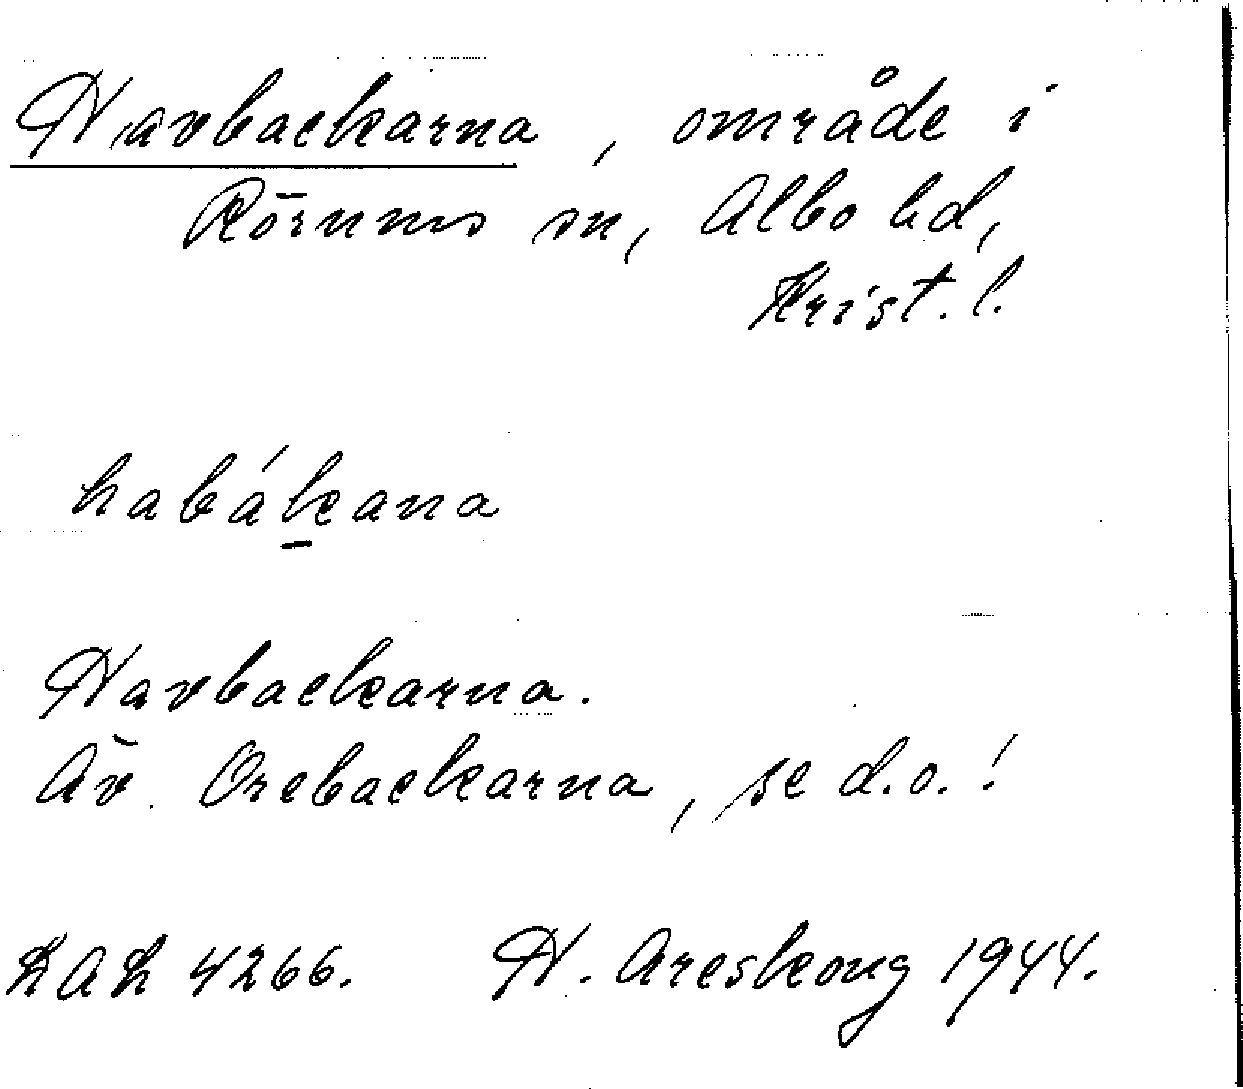 Havbackarna, område i
Rörums sn, Albo hd,
Krist. l.
habákana
Havbackarna.
Äv. Orebackarna, se d.o.!
LAL 4266. H. Areskoug 1944.